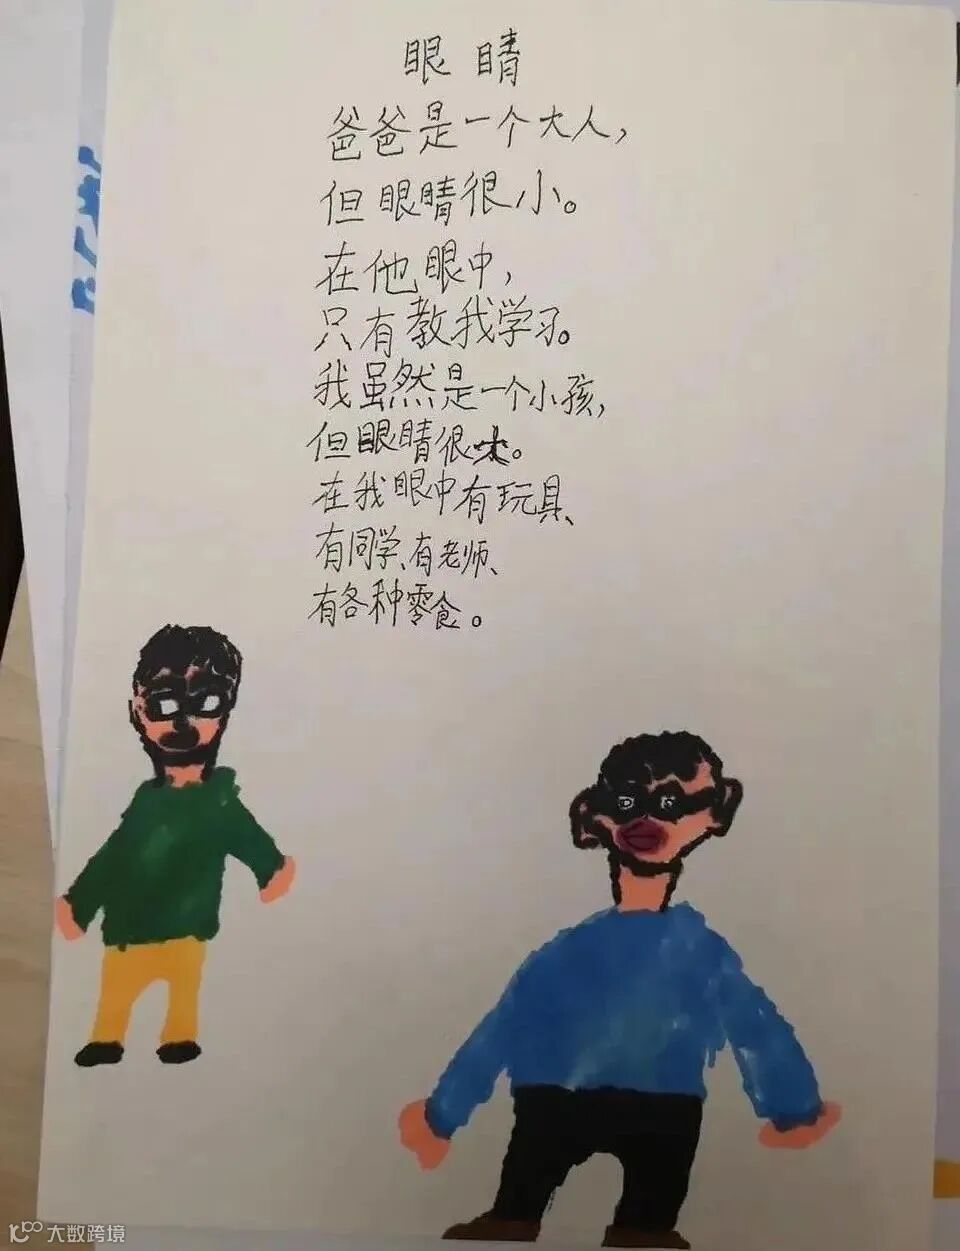 眼睛
爸爸是一个大人,
但眼睛很小。
在他眼中,
只有教我学习。
我虽然是一个小孩,
但眼睛很大。
在我眼中有玩具、
有同学、有老师、
有各种零食。
大数跨境